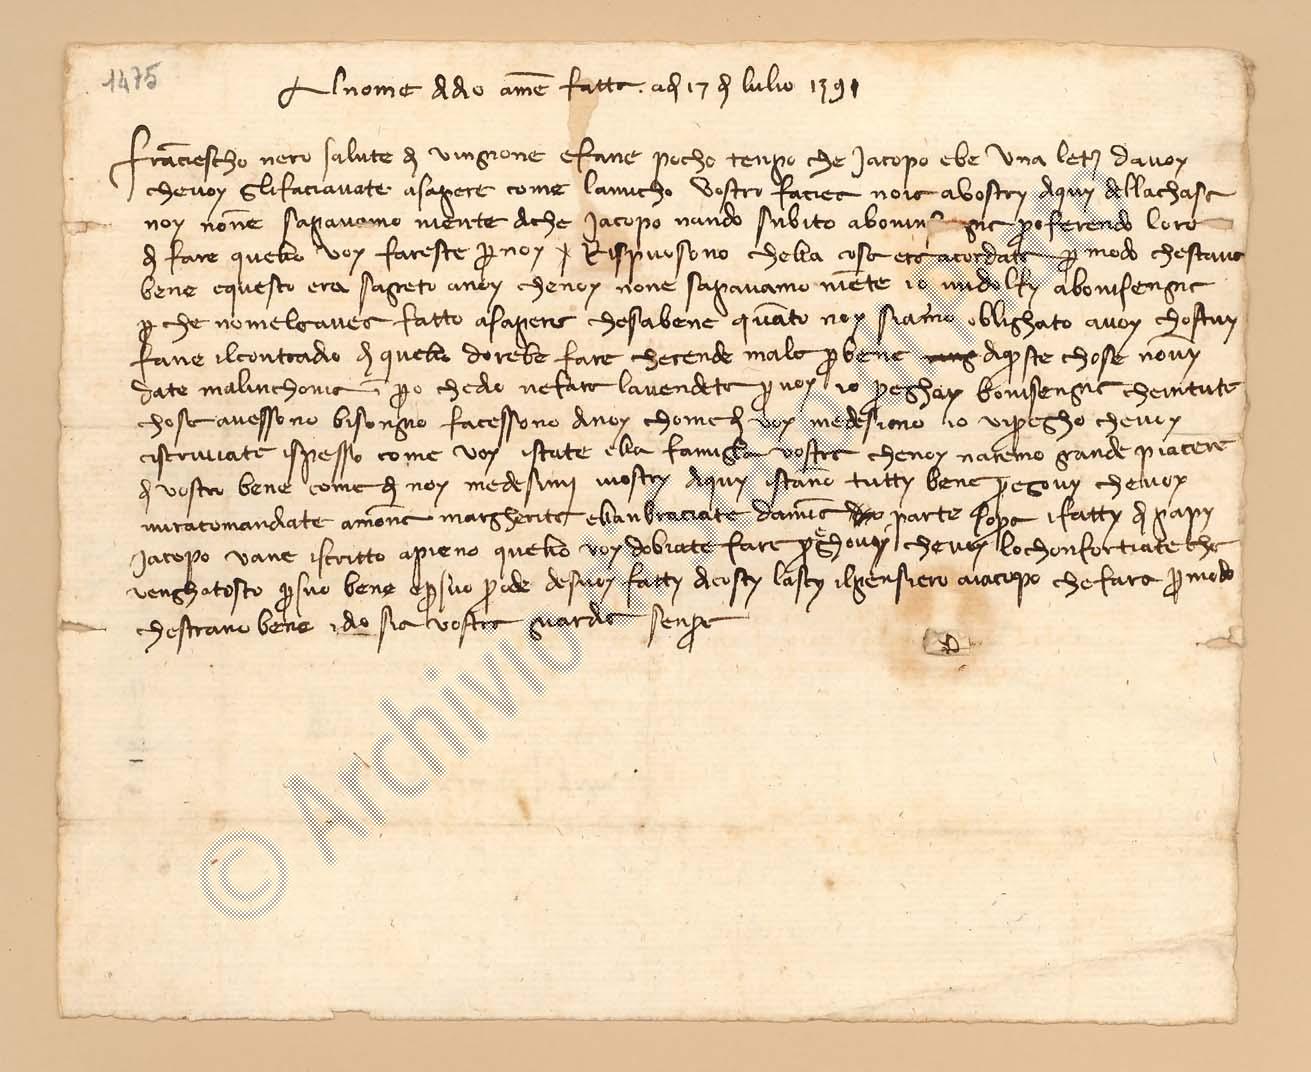 1475
Al nome di dio ame fatta adi 17 di lulio 1391
Franciescho nero salute di vingnone e fane pocho tenpo che Jacopo ebe una letera da voy
che voy gli faciavate asapere come lamicho vostro faciea noia a vostry di quy della chasa
noy none sapavamo niente di che Jacopo nando subito a bonin gnia proferendo loro
di fare quello voy fareste per noy Rispuosono che lla cosa era acordata per modo che stava
bene e questo era sagreto a noy che noy none sapavamo niente io mi dolfy a boninsengnia
per che no me lavea fatto asapere che sa bene quanto noy siamo oblighato a voy chostuy
fane il contradio di quello dorebe fare che rende male per bene di queste chose no vy
date malinchonia pero che dio ne fara la vendeta per voy io preghay boninsengnia che in tute
chose avessono bisongno facessono a noy chome di voy medesimo io vi pregho che voy
ci scriviate ispesso come voy istate e lla famiglia vostra che noy naremo grande piacere
di vostro bene come di noy medesimi i nostry di quy istano tutty bene pregovy che voy
mi racomandate a mona margherita e llanbraciate da mia parte sopra i fatty di papy
Jacopo va ne iscritto apieno quello voy dobiate fare preghovy che voy lo chonfortiate che
vengha tosto per suo bene e per suo prode de suoy fatty di costy lascy il pensiero a iacopo che fara per modo
che starano bene idio sia vostra guardia senpre
© Archivio